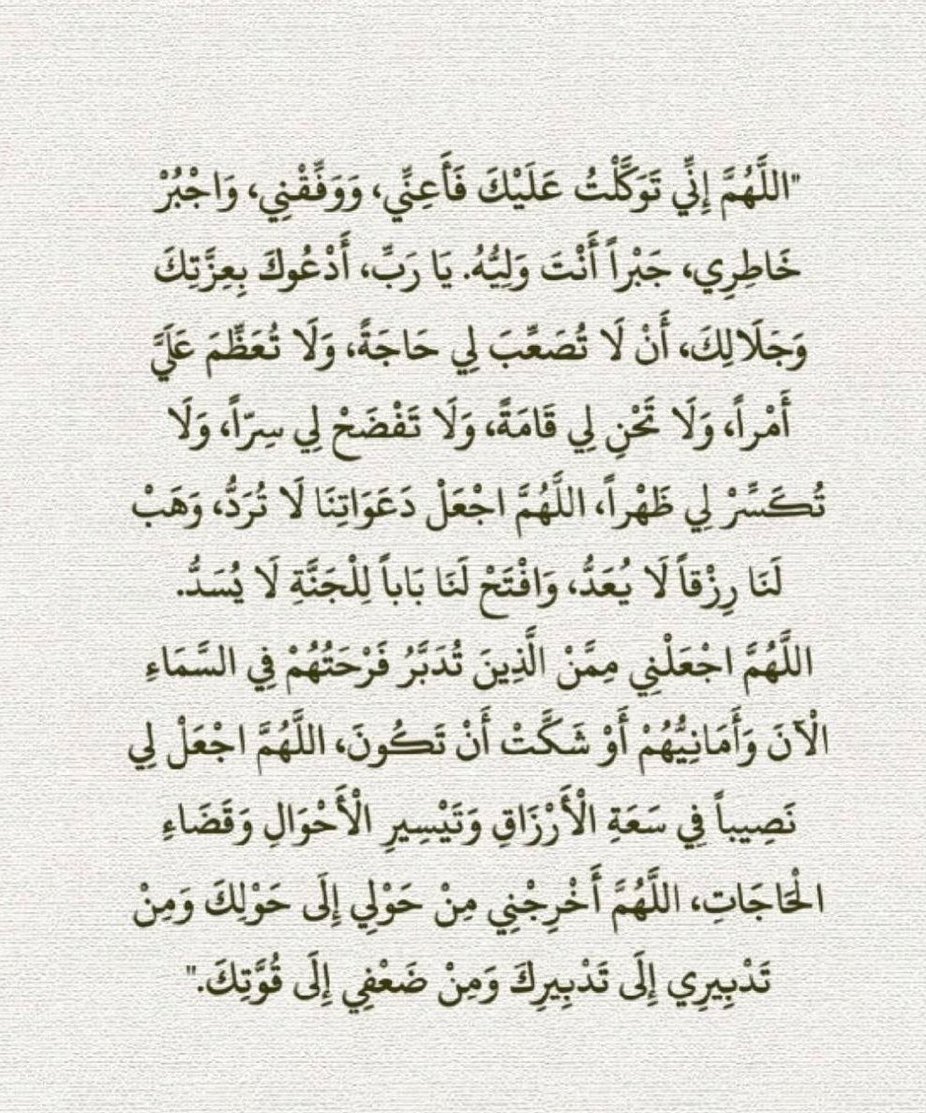 "اللَّهُمَّ إِنِّي تَوَكَّلْتُ عَلَيْكَ فَأَعِنِّي، وَوَفِّقْنِي، وَاجْبُرْ
خَاطِرِي، جَبْراً أَنْتَ وَلِيُّهُ. يَا رَبِّ، أَدْعُوكَ بِعِزَّتِكَ
وَجَلَالِكَ، أَنْ لَا تُصَعِّبَ لِي حَاجَةً، وَلَا تُعَظِّمَ عَلَيَّ
أَمْراً، وَلَا تَحْنِ لِي قَامَةً، وَلَا تَفْضَحْ لِي سِرّاً، وَلَا
تُكَسِّرْ لِي ظَهْراً، اللَّهُمَّ اجْعَلْ دَعَوَاتِنَا لَا تُرَدُّ، وَهَبْ
لَنَا رِزْقاً لَا يُعَدُّ، وَافْتَحْ لَنَا بَاباً لِلْجَنَّةِ لَا يُسَدُّ.
اللَّهُمَّ اجْعَلْنِي مِمَّنْ الَّذِينَ تُدَبَّرُ فَرْحَتُهُمْ فِي السَّمَاءِ
الْآنَ وَأَمَانِيُّهُمْ أَوْ شَكَّتْ أَنْ تَكُونَ، اللَّهُمَّ اجْعَلْ لِي
نَصِيباً فِي سَعَةِ الْأَرْزَاقِ وَتَيْسِيرِ الْأَحْوَالِ وَقَضَاءِ
الْحَاجَاتِ، اللَّهُمَّ أَخْرِجْنِي مِنْ حَوْلِي إِلَى حَوْلِكَ وَمِنْ
تَدْبِيرِي إِلَى تَدْبِيرِكَ وَمِنْ ضَعْفِي إِلَى قُوَّتِكَ."